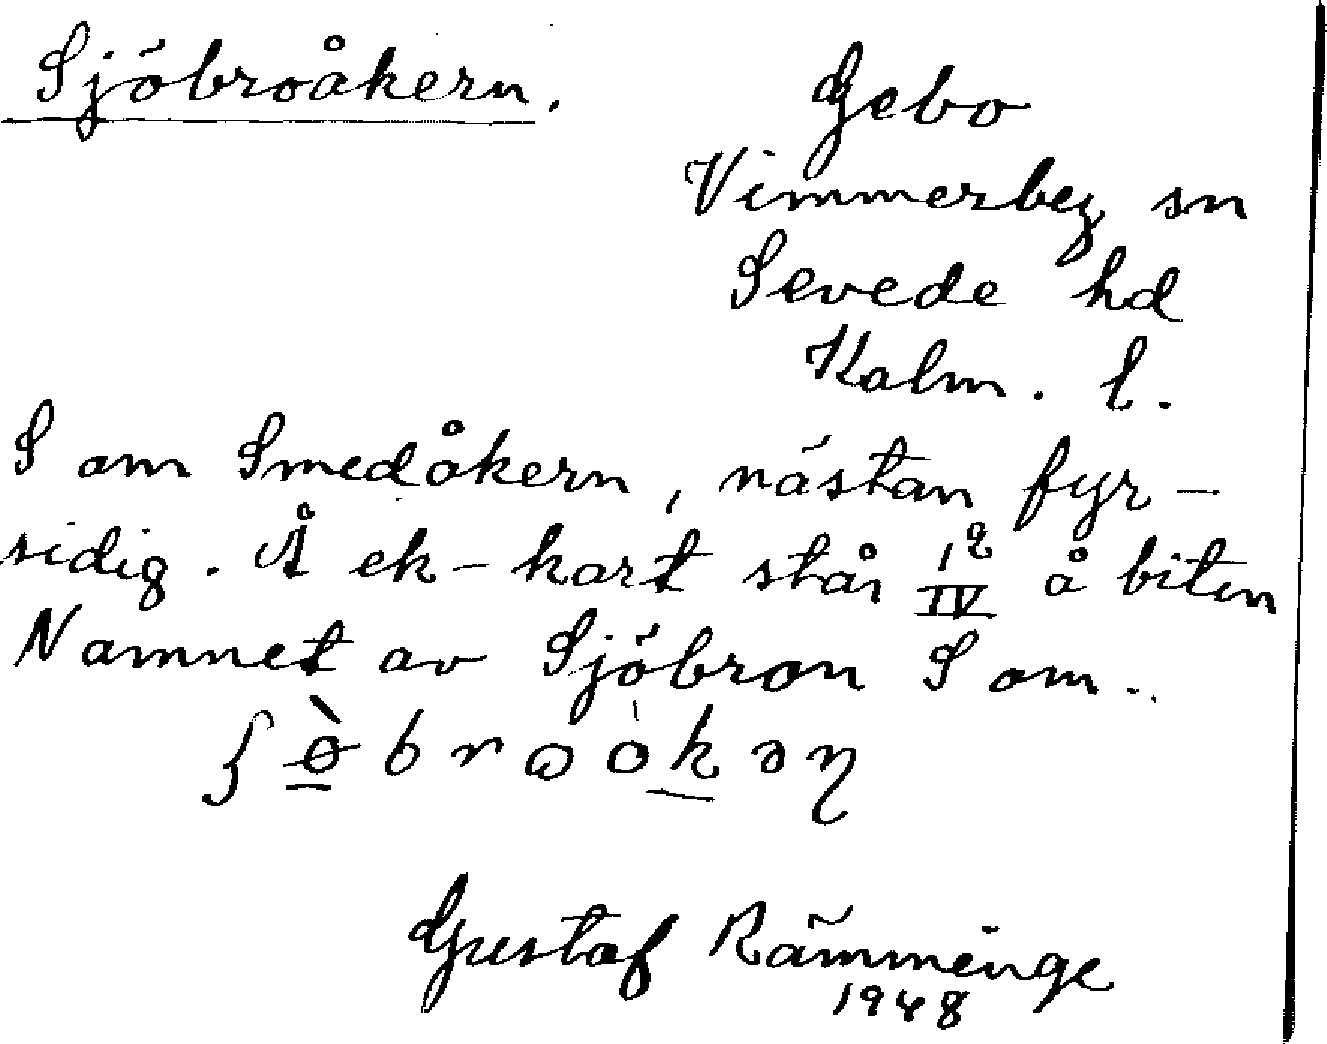 Sjöbroåkern.
Gebo
Vimmerby sn
Sevede hd
Kalm. l.
S om Smedåkern, nästan fyr-
sidig. Å ek-kart står 12/IV å biten
Namnet av Sjöbron S om..
ʃɵ̀broòkəɳ
Gustaf Rämminge
1948